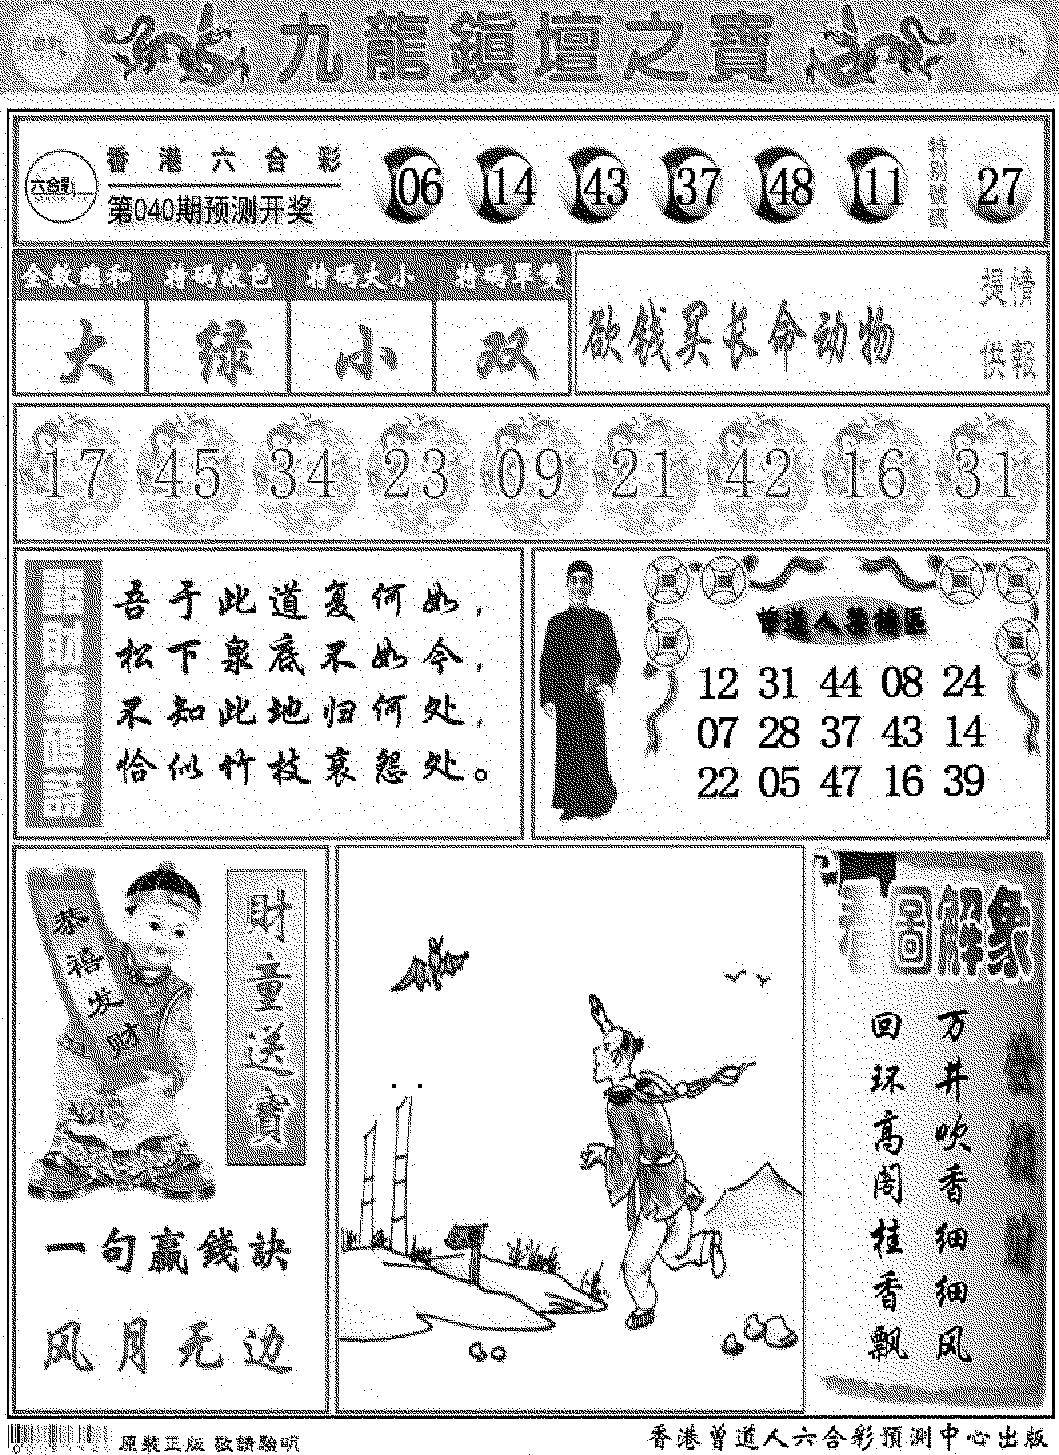 九龍鎮壇之寶
香港六合彩
六合彩
第040期预测开奖
06 14 43 37 48 11
特別號碼
27
全數總和 特码波色 特码大小 特码單雙
大 绿 小 双
欲钱买长命动物
提情
供報
17 45 34 23 09 21 42 16 31
吾于此道复何如，
松下泉底不如今，
不知此地归何处，
恰似竹枝哀怨处。
12 31 44 08 24
07 28 37 43 14
22 05 47 16 39
恭禧发财
財童送寶
一句赢錢訣
风月无边
圖解象
万井吹香细细风
回环高阁桂香飘
原裝正版 敬請驗明
香港曾道人六合彩預測中心出版